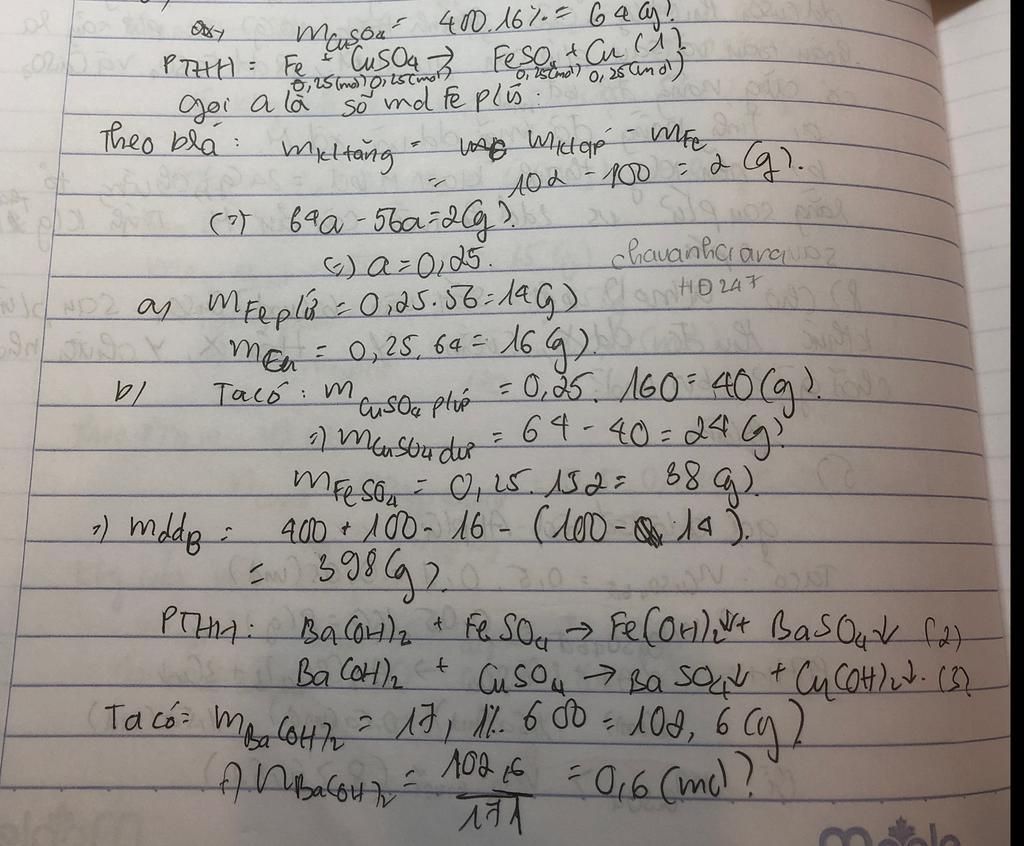 a, mCuSO4 = 400.16% = 64(g).
PTHH: Fe + CuSO4 → FeSO4 + Cu (1)
0,25(mol) 0,25(mol) 0,25(mol) 0,25(mol)
gọi a là số mol Fe pứ.
Theo bra: mkl tăng = mkl cặp - mFe
= 102 - 100 = 2 (g).
(=) 64a - 56a = 2(g).
(=) a = 0,25.
chauanhciara
HĐ247
a, mFe pứ = 0,25.56 = 14(g)
mCu = 0,25.64 = 16(g).
b/ Ta có: mCuSO4 pứ = 0,25.160 = 40(g).
=) mCuSO4 dư = 64 - 40 = 24(g).
mFeSO4 = 0,25.152 = 38(g).
=) mddB = 400 + 100 - 16 - (100 - 14).
= 398(g).
PTHH: Ba(OH)2 + FeSO4 → Fe(OH)2↓ + BaSO4↓ (2)
Ba(OH)2 + CuSO4 → BaSO4↓ + Cu(OH)2↓. (3)
Ta có: mBa(OH)2 = 17,1%.600 = 102,6(g)
=) nBa(OH)2 = 102,6/171 = 0,6(mol)
maple